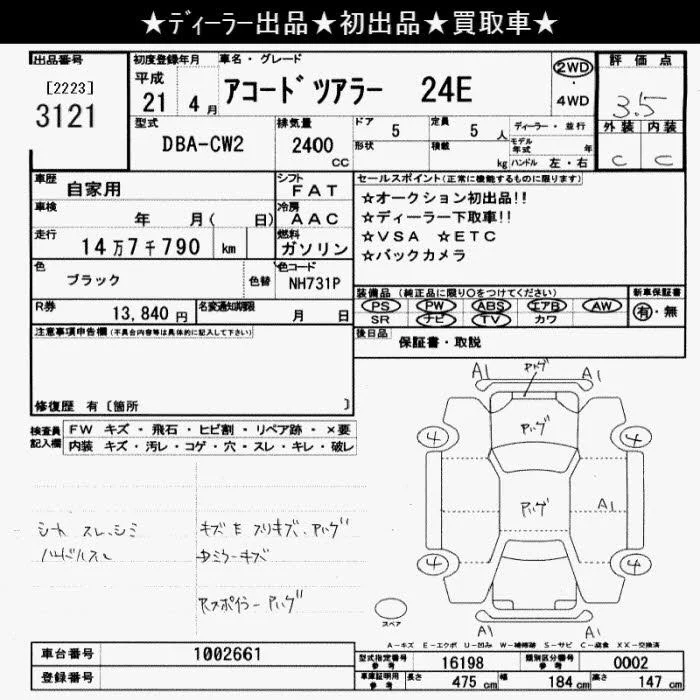 ★ディーラー出品★初出品★買取車★
出品番号
[2223]
3121
初度登録年月
平成
21 4月
車名・グレード
アコードツアラー 24E
2WD
4WD
評価点
3.5
外装 内装
C C
型式
DBA-CW2
排気量
2400
CC
ドア 5
定員 5 人
形状
積載 kg
ディーラー・並行
モデル年式 年
ハンドル 左・右
車歴 自家用
シフト FAT
車検 年 月( 日)
冷房 AAC
走行 14万7千790 km
燃料 ガソリン
色 ブラック
色替
色コード NH731P
R券 13,840円
名変通知期限 月 日
セールスポイント(正常に機能するものに限ります)
☆オークション初出品!!
☆ディーラー下取車!!
☆VSA ☆ETC
☆バックカメラ
装備品(純正品に限り○をつけてください)
PS PW ABS エアB AW
SR ナビ TV カワ
新車保証書
有・無
後日品 保証書・取説
注意事項申告欄(不具合内容等は具体的に記入して下さい)
修復歴 有〔箇所 〕
検査員記入欄
FW キズ・飛石・ヒビ割・リペア跡・×要
内装 キズ・汚レ・コゲ・穴・スレ・キレ・破レ
シート スレ、シミ
ハンドルスレ
キズE スリキズ、アハゲ
ドアミラーキズ
Rスポイラー アハゲ
A1 アトゲ A1
アハゲ
4 4
アハゲ
A1
4 4
A1 A1
スペア
A-キズ E-エクボ U-凹み W-補修跡 S-サビ C-腐食 XX-交換済
車台番号 1002661
登録番号
型式指定番号 参考 16198
類別区分番号 参考 0002
車庫証明用 参考 長さ 475 cm 幅 184 cm 高さ 147 cm